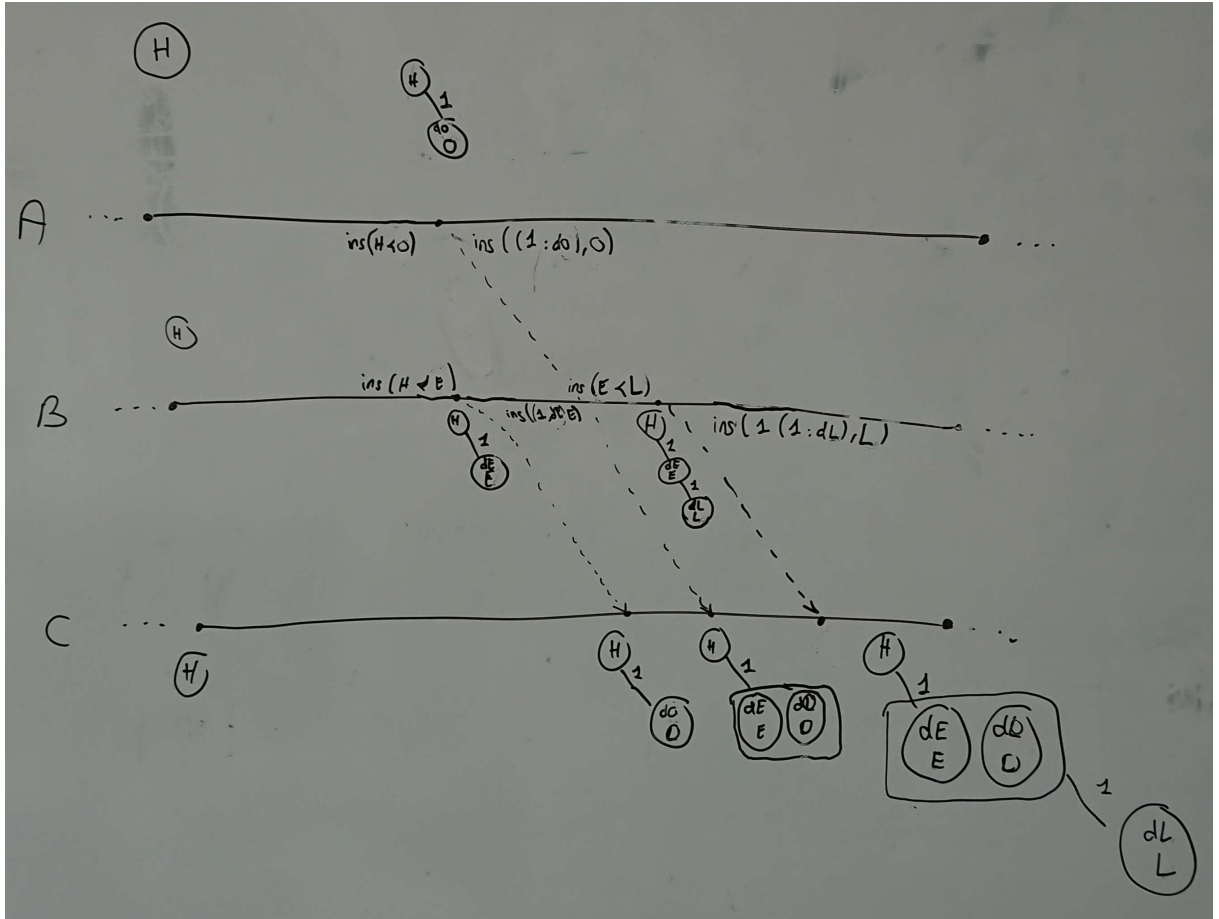 H
H
1
dO
O
A ...
...
ins(H<O)
ins((1:dO),O)
H
B ....
....
ins(H<E)
ins(E<L)
ins((1:dE),E)
ins(1(1:dL),L)
H
1
dE
E
H
1
dE
E
1
dL
L
C ...
...
H
H
1
dO
O
H
1
dE
E
dO
O
H
1
dE
E
dO
O
1
dL
L